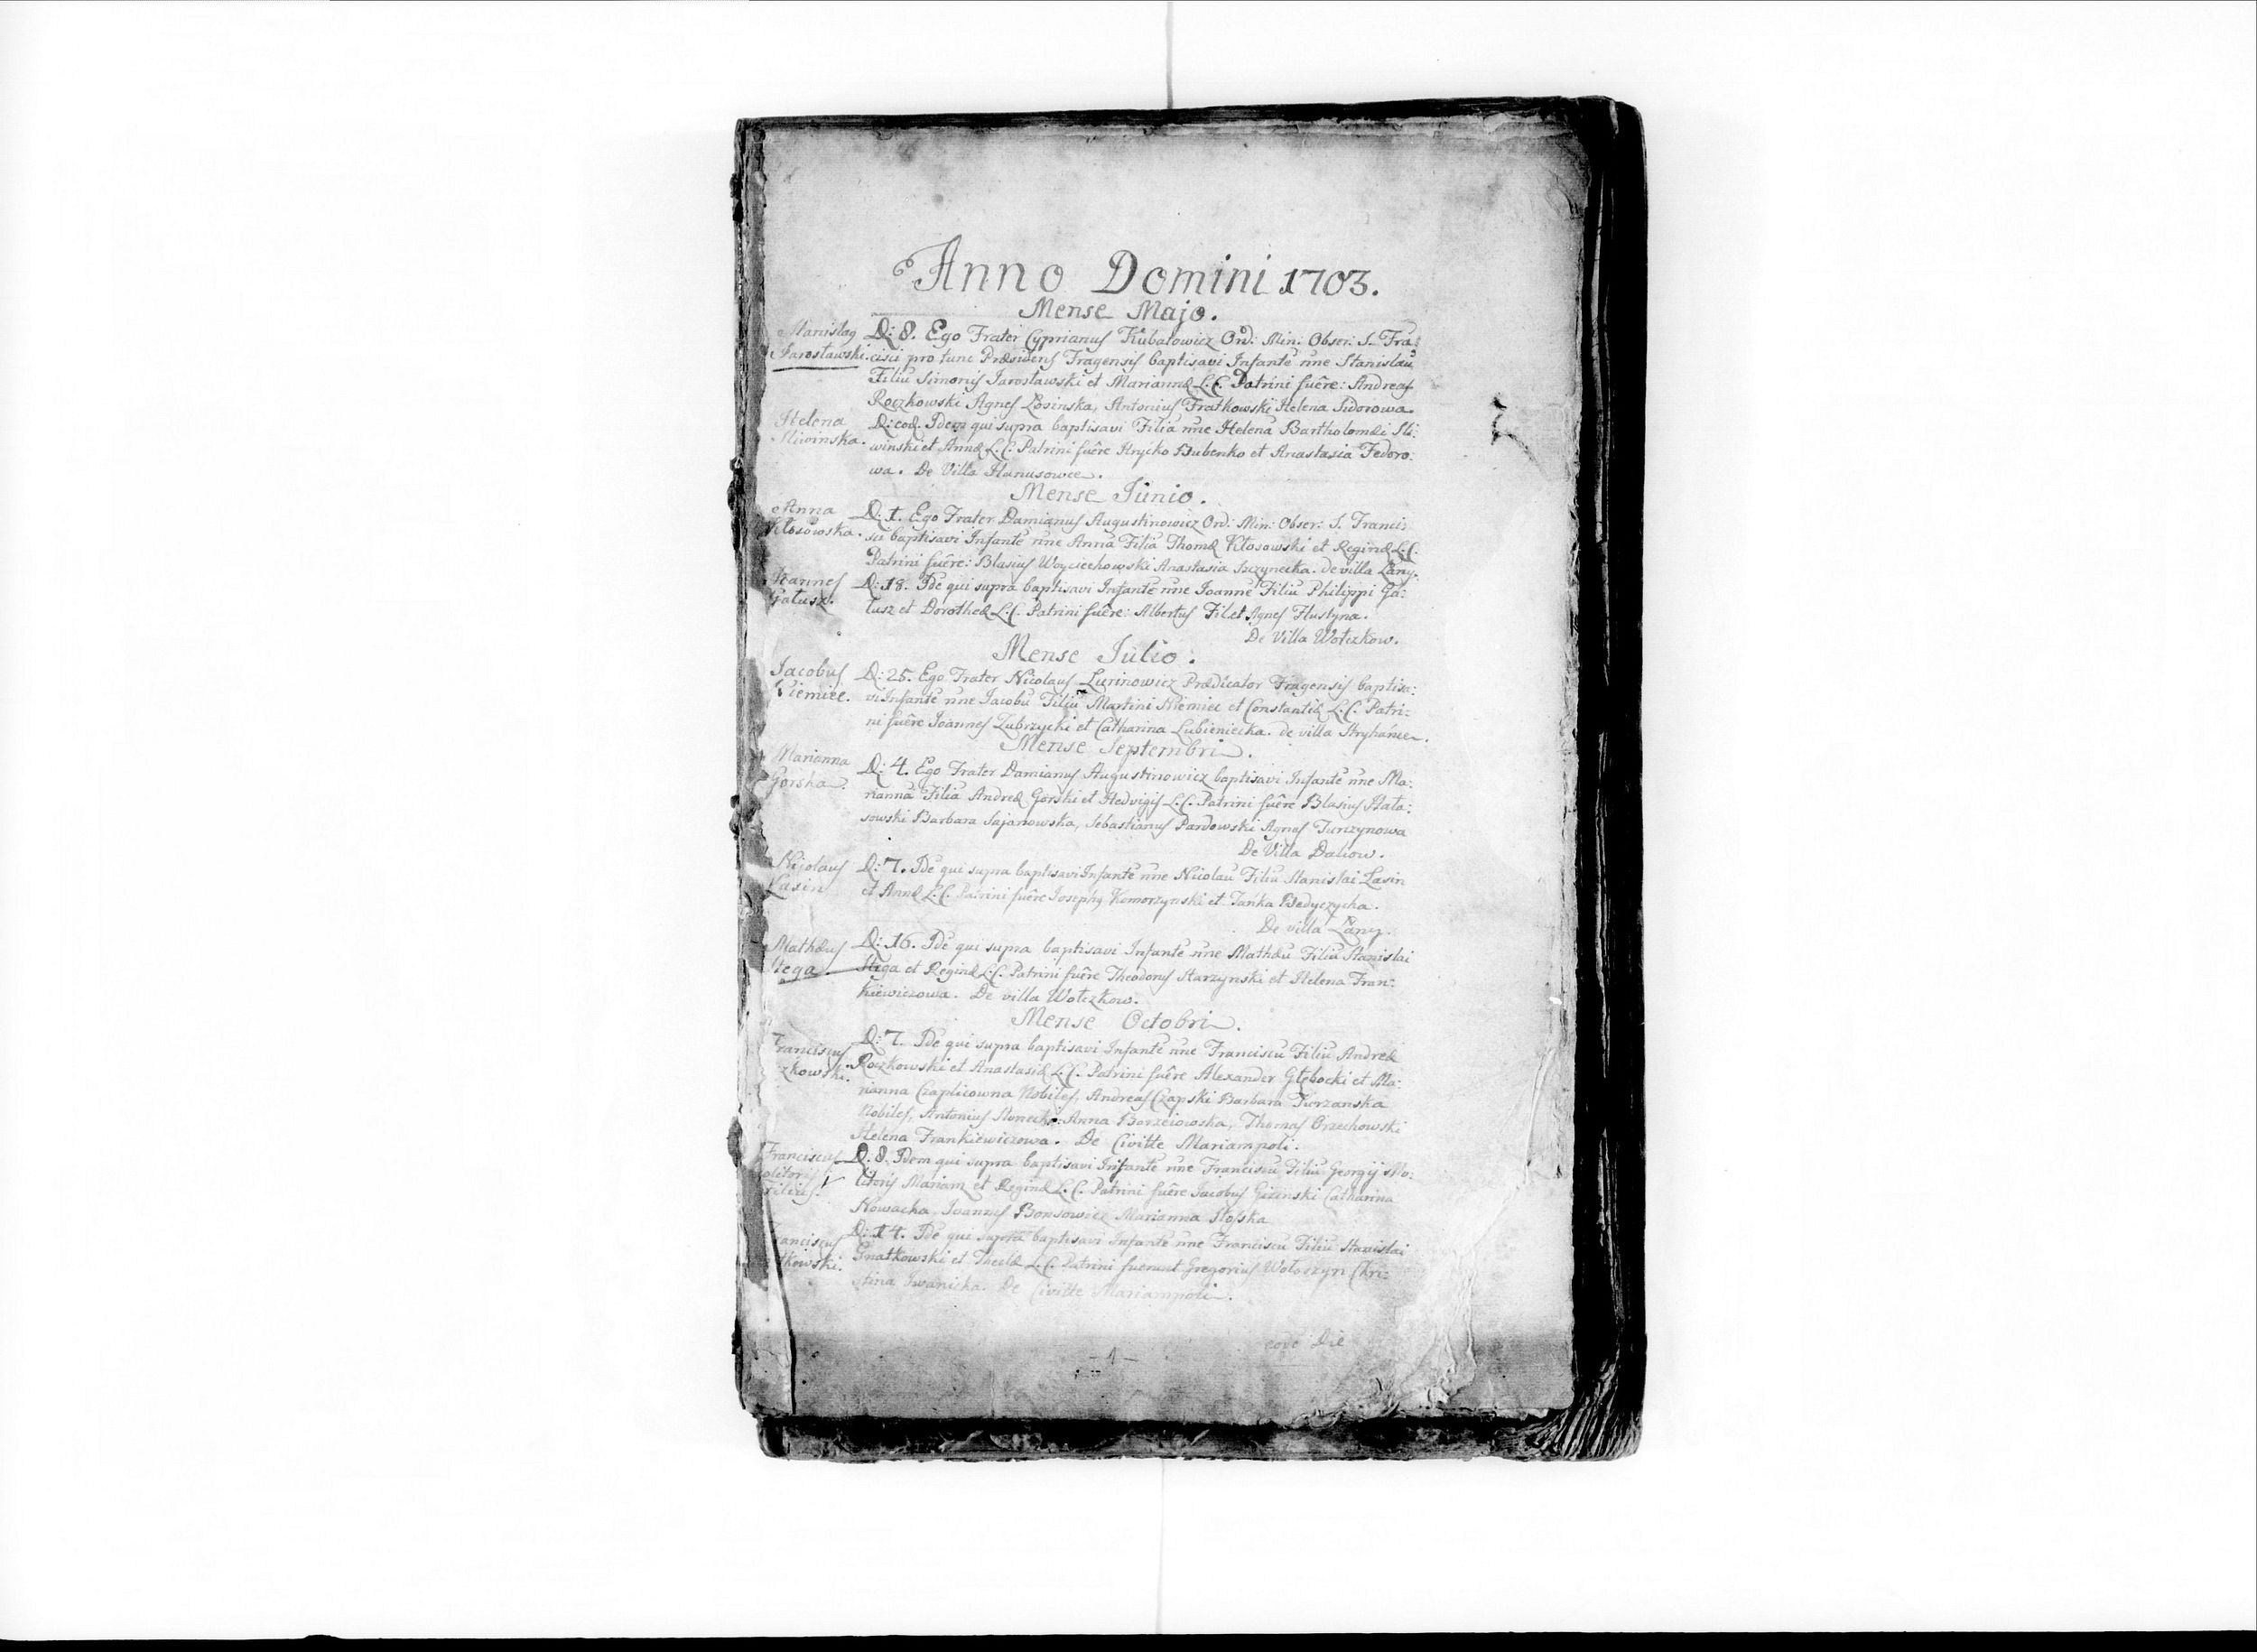 Anno Domini 1703.
Mense Majo.
Stanislaq Jarosławski.
D: 8. Ego Frater Cyprianus Kubatowicz Ord: Min: Obser: S. Fra:
cisci pro tunc Præsidens Fragensis baptisavi Infantē nñe Stanislaū
Filiū Simonis Jarosławski et Mariannæ L.C. Patrini fuêre: Andreas
Roczkowski Agnes Losinska, Antonius Fratkowski Helena Sidorowa.
Helena Sliwinska.
D: eod. Idem qui supra baptisavi Filiā nñe Helenā Bartholomæi Sli:
winski et Annæ L.C. Patrini fuêre Hryćko Bubenko et Anastasia Fedoro:
wa. De Villa Hanusowce.
Mense Junio.
Anna Kłosowska.
D: 1. Ego Frater Damianus Augustinowicz Ord: Min: Obser: S. Franci:
sci baptisavi Infantē nñe Annā Filiā Thomæ Kłosowski et Reginæ L.C.
Patrini fuêre: Blasius Woyciechowski Anastasia Szczynecka. de villa Łany.
Joannes Gałusz.
D: 18. Idē qui supra baptisavi Infantē nñe Joannē Filiū Philippi Ga:
łusz et Dorotheæ L.C. Patrini fuêre: Albertus Fil et Agnes Hustyna.
De Villa Wołczkow.
Mense Julio.
Jacobus Niemiec.
D: 25. Ego Frater Nicolaus Lurinowicz Prædicator Fragensis baptisa:
vi Infantē nñe Jacobū Filiū Martini Niemiec et Constantiæ L.C. Patri:
ni fuêre Joannes Zubrzycki et Catharina Lubieniecka. de villa Stryhańce.
Mense Septembri.
Marianna Gorska.
D: 4. Ego Frater Damianus Augustinowicz baptisavi Infantē nñe Ma:
riannā Filiā Andreæ Gorski et Hedvigis L.C. Patrini fuêre Blasius Hała:
sowski Barbara Sajanowska, Sebastianus Pardowski Agnes Turczynowa
De Villa Daliow.
Nicolaus Łasin
D: 7. Idē qui supra baptisavi Infantē nñe Nicolaū Filiū Stanislai Łasin
et Annæ L.C. Patrini fuêre Josephq Komorzynski et Tanka Bedyczycha.
De villa Łany.
Mathæus Stega
D: 16. Idē qui supra baptisavi Infantē nñe Mathæū Filiū Stanislai
Stega et Reginæ L.C. Patrini fuêre Theodorus Starzynski et Helena Fran:
kiewiczowa. De villa Wołczkow.
Mense Octobri.
Franciscus
zkowski.
D: 7. Idē qui supra baptisavi Infantē nñe Franciscū Filiū Andreæ
Roczkowski et Anastasiæ L.C. Patrini fuêre Alexander Głębocki et Ma:
rianna Czaplicowna Nobiles, Andreas Czapski Barbara Turzanska
Nobiles, Antonius Anna Borzeiowska, Thomas Orzechowski
Helena Frankiewiczowa. De Civitte Mariampoli.
Franciscus
olitoris
Filius.
D: 8. Idem qui supra baptisavi Infantē nñe Franciscū Filiū Georgij Mo:
litoris Mariam et Reginæ L.C. Patrini fuêre Jacobus Gizinski Catharina
Kowacka Joannes Bonsowicz Marianna Slosska
ranciscus
tkowski.
D: 14. Idē qui supra baptisavi Infantē nñe Franciscū Filiū Stanislai
Gnatkowski et Theclæ L.C. Patrini fuerunt Gregorius Wołoszyn Chri:
stina Iwanicka. De Civitte Mariampoli.
eodē Die
- 1 -